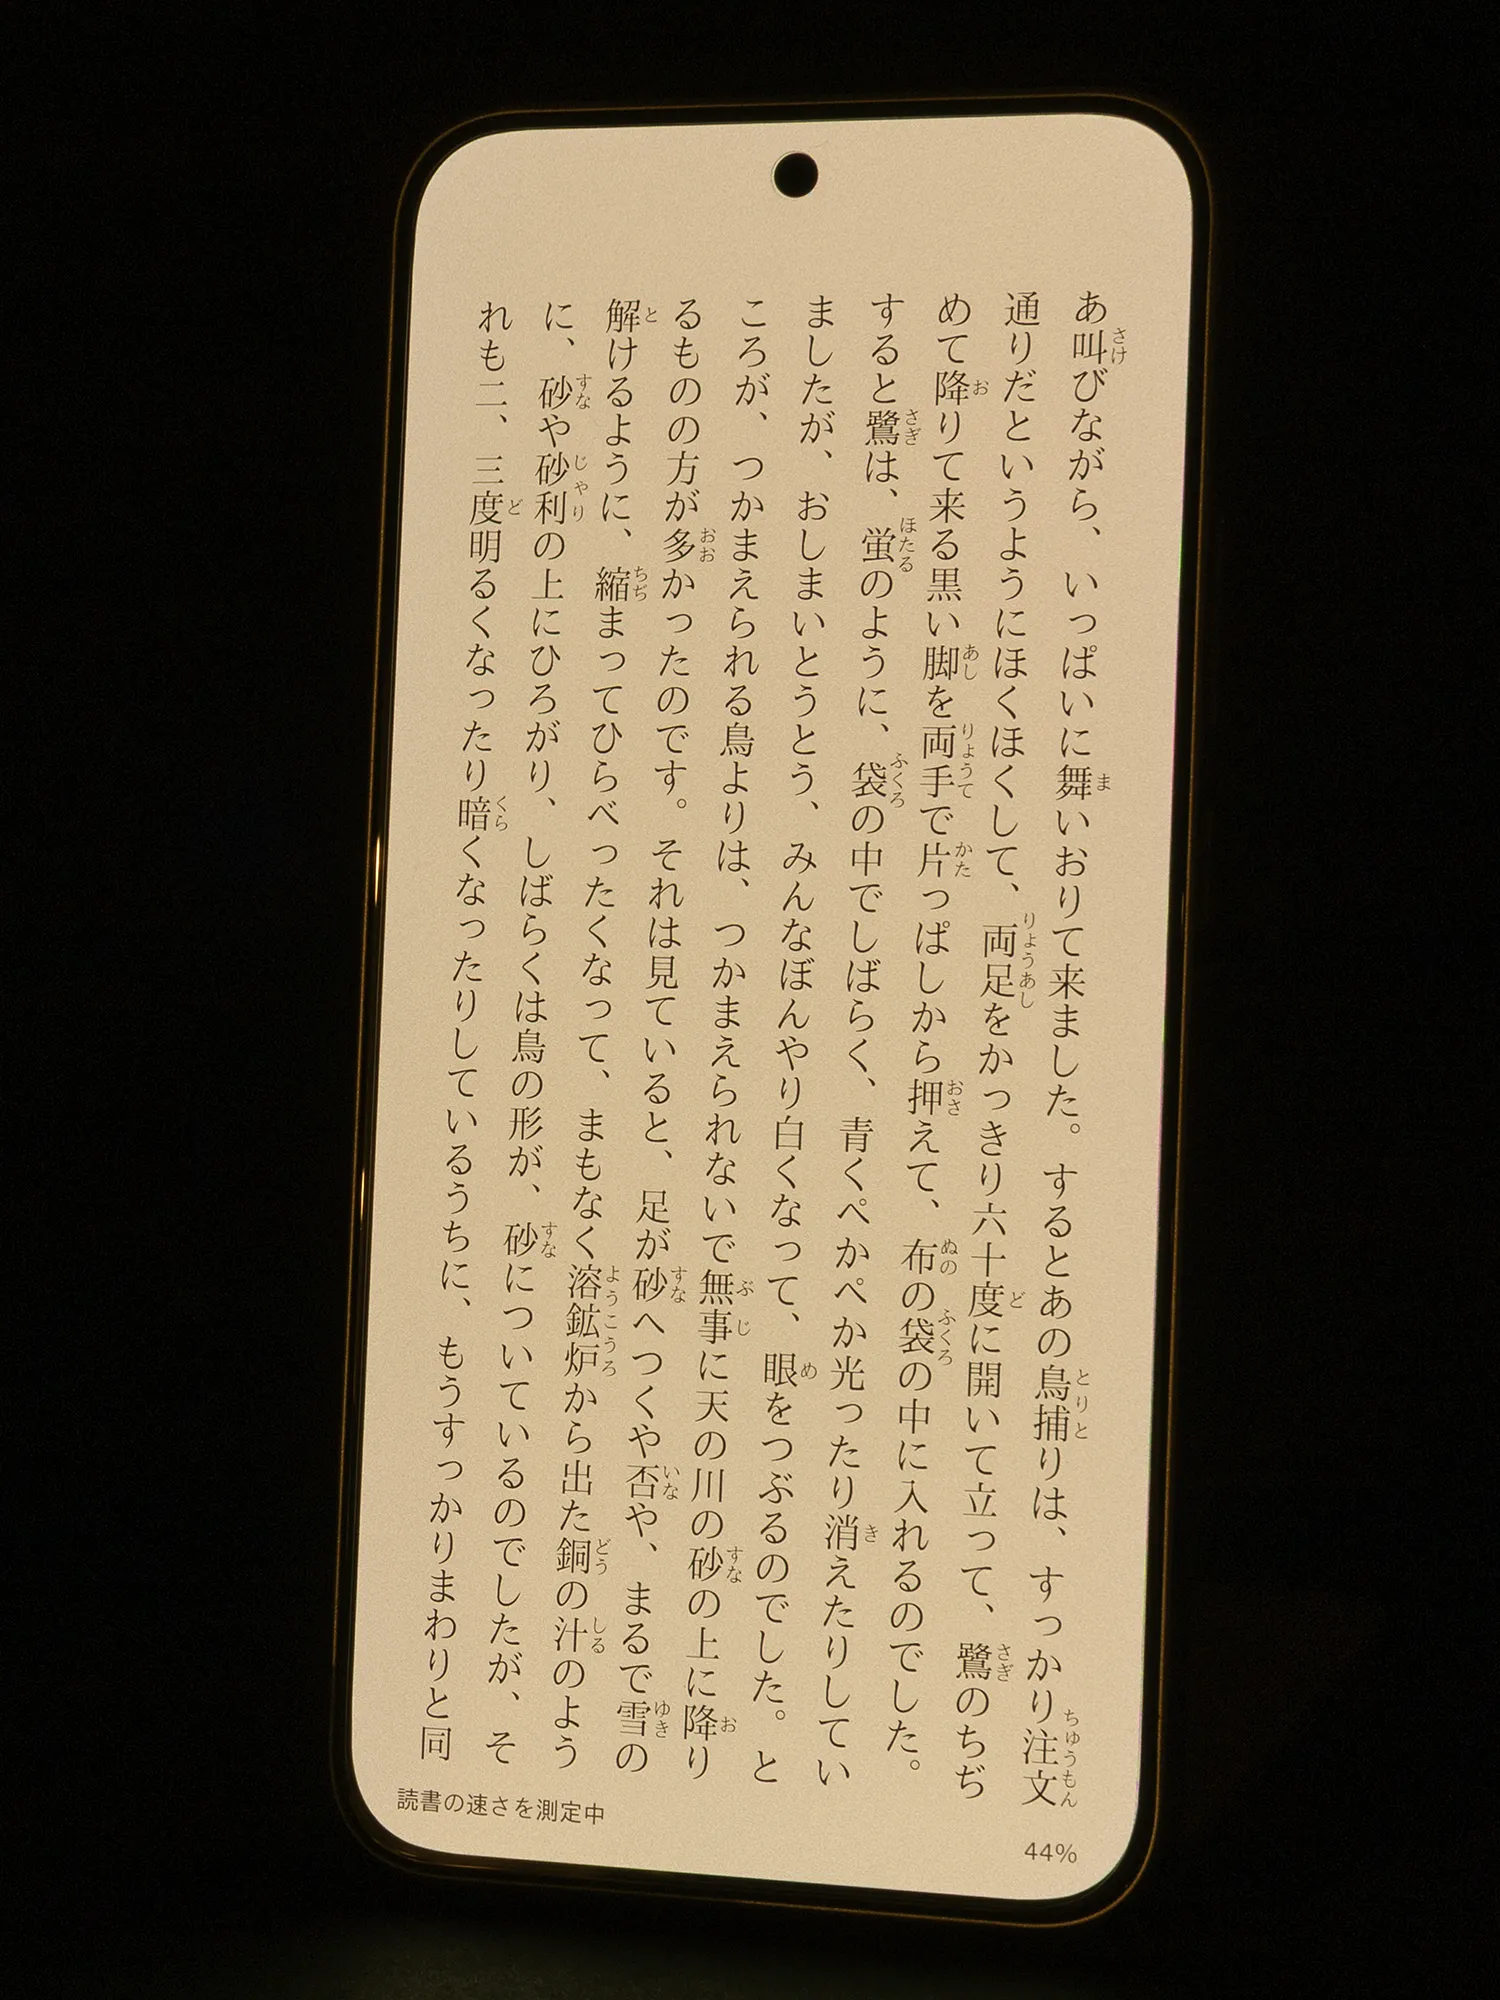 あ叫びながら、いっぱいに舞いおりて来ました。するとあの鳥捕りは、すっかり注文
通りだというようにほくほくして、両足をかっきり六十度に開いて立って、鷺のちぢ
めて降りて来る黒い脚を両手で片っぱしから押えて、布の袋の中に入れるのでした。
すると鷺は、蛍のように、袋の中でしばらく、青くぺかぺか光ったり消えたりしてい
ましたが、おしまいとうとう、みんなぼんやり白くなって、眼をつぶるのでした。と
ころが、つかまえられる鳥よりは、つかまえられないで無事に天の川の砂の上に降り
るものの方が多かったのです。それは見ていると、足が砂へつくや否や、まるで雪の
解けるように、縮まってひらべったくなって、まもなく溶鉱炉から出た銅の汁のよう
に、砂や砂利の上にひろがり、しばらくは鳥の形が、砂についているのでしたが、そ
れも二、三度明るくなったり暗くなったりしているうちに、もうすっかりまわりと同
読書の速さを測定中
44%